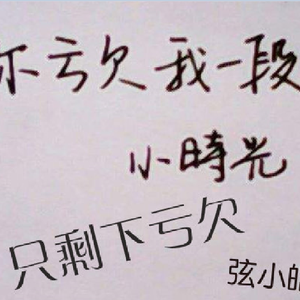 亏欠我一段
小時光
只剩下亏欠
弦小